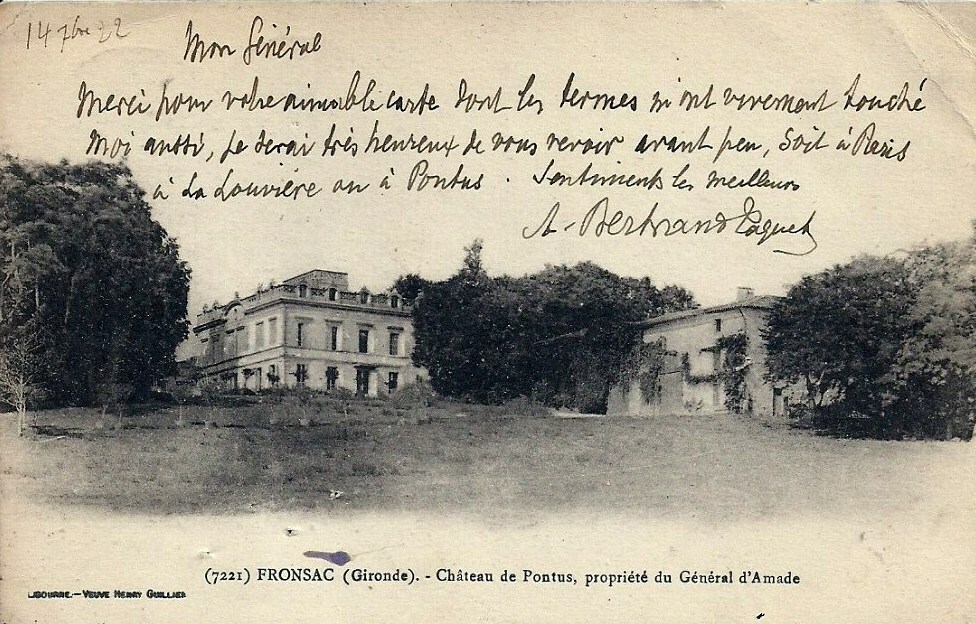 14 7bre 22
Mon Général
Merci pour votre aimable carte dont les termes m'ont vivement touché
Moi aussi, je serai très heureux de vous revoir avant peu, soit à Paris
à La Louvière ou à Pontus. Sentiments les meilleurs
A. Bertrand
(7221) FRONSAC (Gironde). - Château de Pontus, propriété du Général d'Amade
LIBOURNE.—VEUVE HENRY GUILLIER